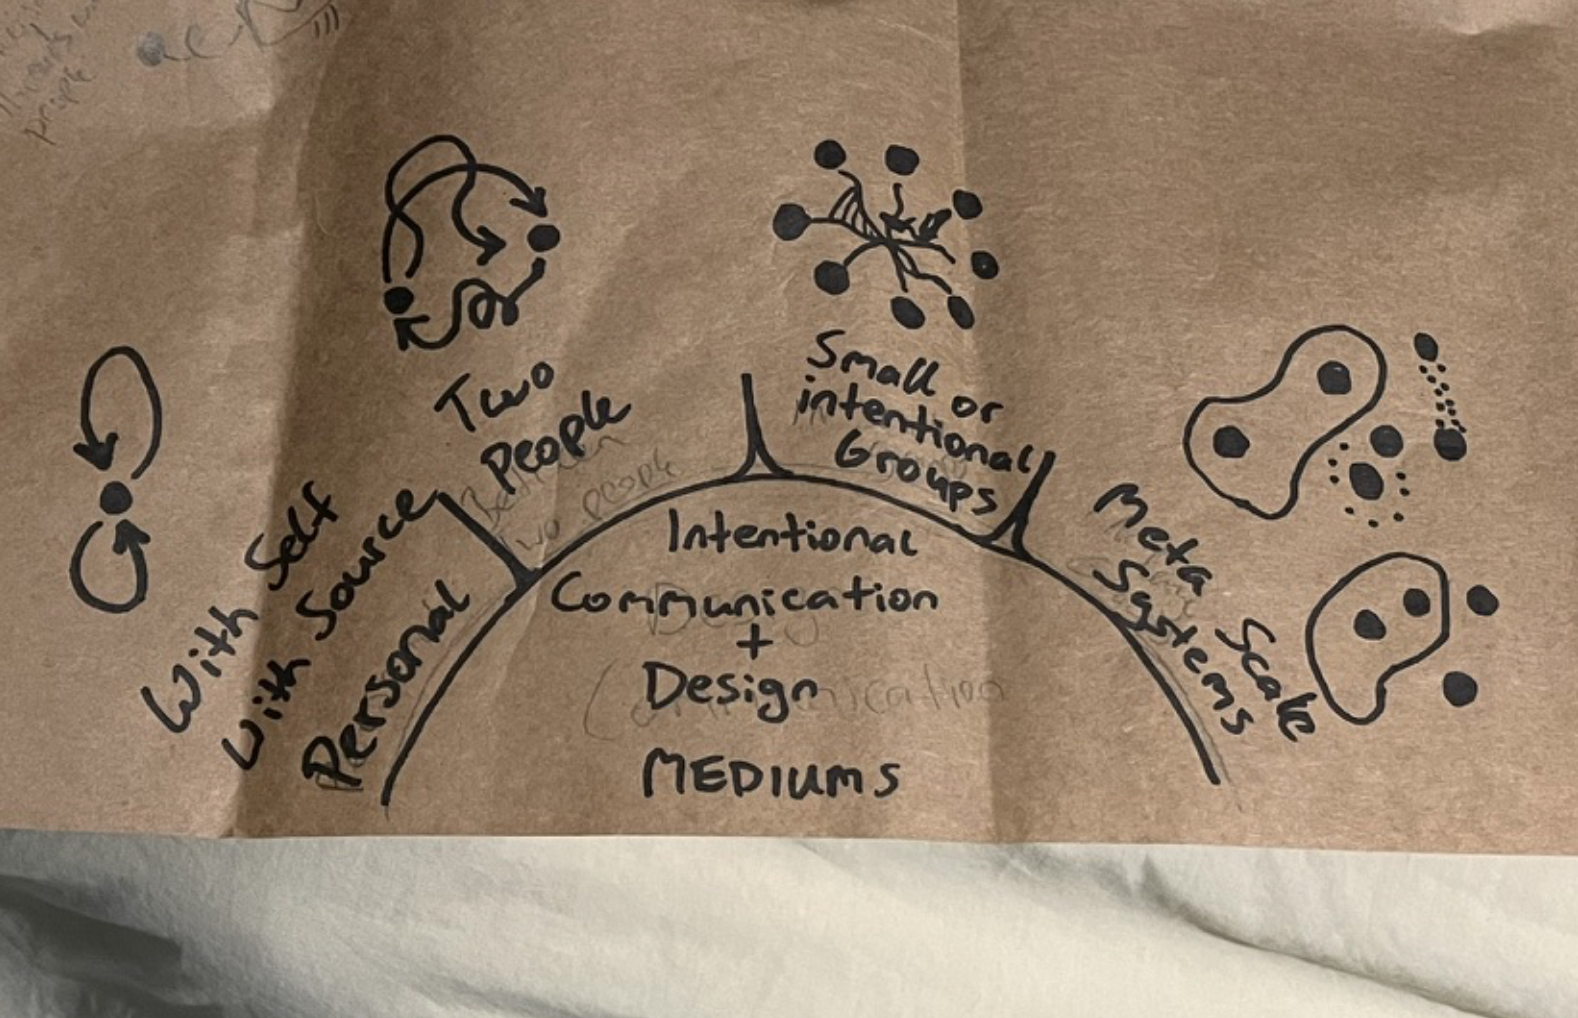 people
With Self
With Source
Personal
Two
People
Between
two people
Small or
intentional
Groups
Meta Scale
Systems
Intentional
Communication
+
Design
Communication
MEDIUMS